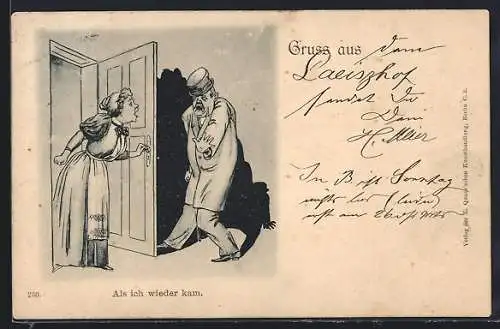 Gruss aus dem
Laeiszhof
sendet Dir
Dein
H. Meier
In B. ist Sonntag
nichts hier (leider)
erst am
Als ich wieder kam.
250.
Verlag der
Kunsthandlung, Berlin C. 2.